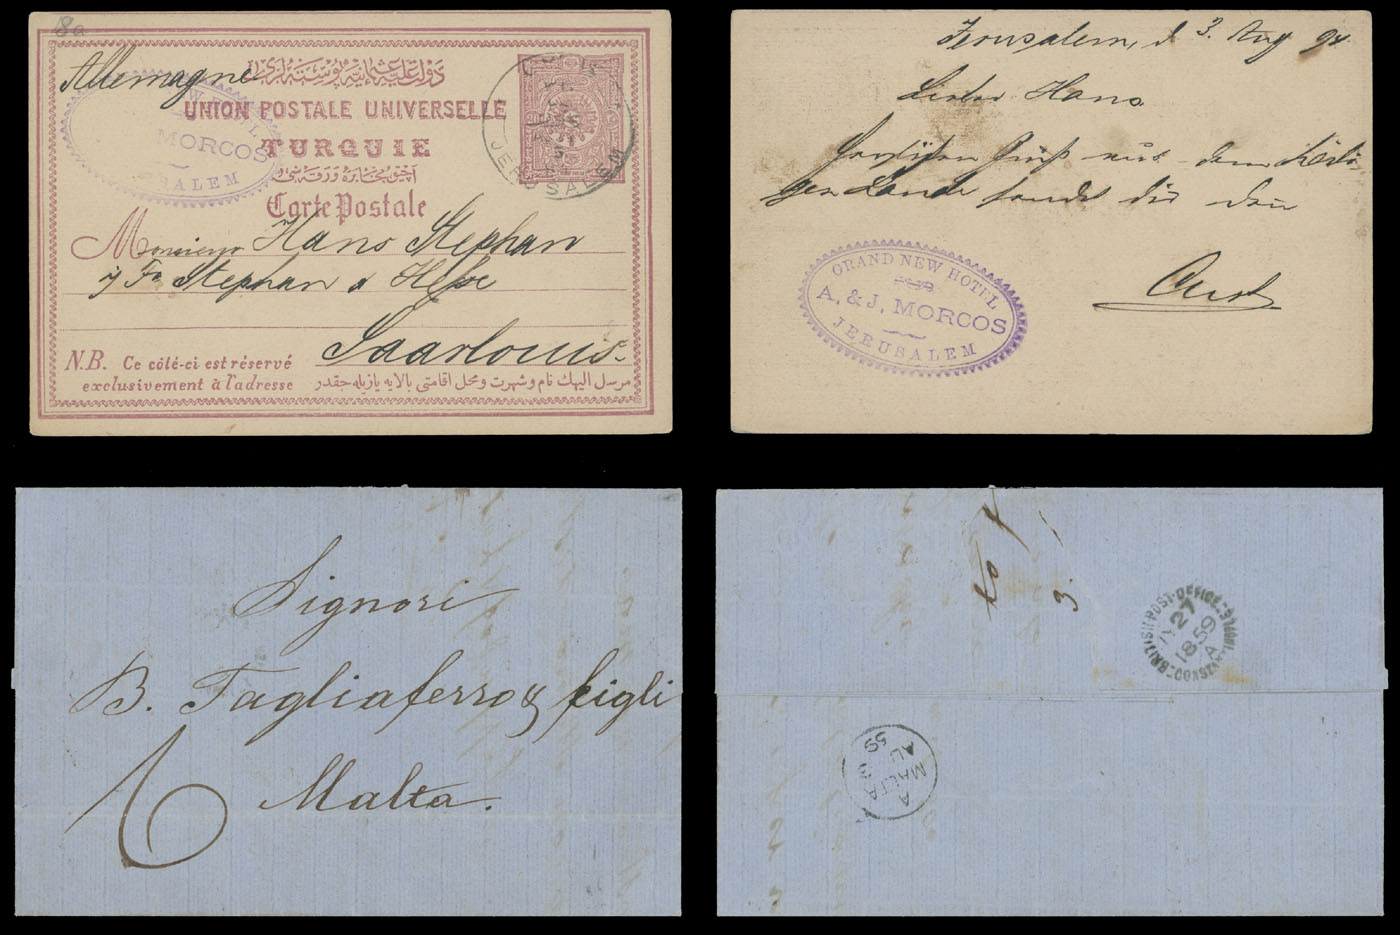 8a
Allemagne
دولت عليه عثمانيه پوسته لرى
UNION POSTALE UNIVERSELLE
TURQUIE
Carte Postale
MORCOS
SALEM
JERUSALEM
Monsieur Hans Stephan
Stephan & Hesse
Saarlouis.
N.B. Ce côté-ci est réservé
exclusivement à l'adresse
مرسل اليهك نام و شهرت و محل اقامتى بالايه يازيله جقدر
Jerusalem, d 3. Aug 94
Lieber Hans
Herzlichen Gruß aus dem Heili-
gen Lande sendet dir dein
GRAND NEW HOTEL
A. & J. MORCOS
JERUSALEM
Signori
B. Tagliaferro & figli
Malta.
6
3.
BRITISH-POST-OFFICE-CONSTANTINOPLE
27
1859
A
A
MALTA
AU
59